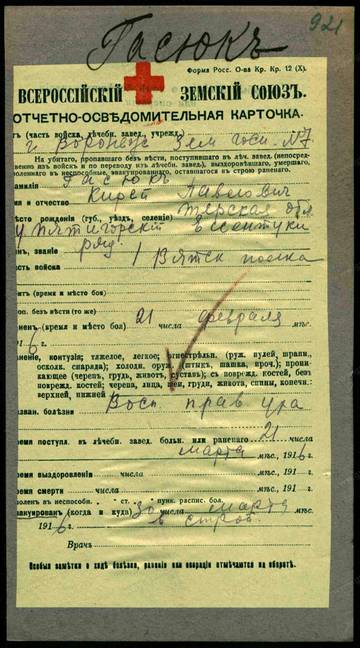 921
Гасюкъ
Форма Росс. О-ва Кр. Кр. 12 (X).
ВСЕРОССІЙСКІЙ ЗЕМСКІЙ СОЮЗЪ.
ОТЧЕТНО-ОСВѢДОМИТЕЛЬНАЯ КАРТОЧКА.
(часть войска, лѣчебн. завед., учрежд.)
г. Воронеж Зем. госп. №7
На убитаго, пропавшаго безъ вѣсти, поступившаго въ лѣч. завед. (непосред-
венно изъ войскъ и по переводу изъ др. лѣчебн. завед.), выздоровѣвшаго, умершаго,
воленнаго въ неспособные, эвакуированнаго, оставшагося въ строю раненаго.
амилія Гасюкъ
мя и отчество Кирей Павлович
ѣсто рожденія (губ., уѣздъ, селеніе) Терская обл.
Пятигорскій Ессентуки
нъ, званіе ряд.
асть войска 1 Вятск полка
нъ (время и мѣсто боя)
п. безъ вѣсти (то же)
ненъ (время и мѣсто боя) 21 числа февраля мѣс.
191 6 г.
неніе, контузія; тяжелое, легкое; огнестрѣльн. (руж. пулей, шрапн.,
осколк. снаряда); холодн. оруж. (штыкъ, шашка, проч.); прони-
кающее (черепъ, грудь, животъ, суставъ); съ поврежд. костей, безъ
поврежд. костей; черепа, лица, шеи, груди, живота, спины, конечн.:
верхней, нижней
назван. болѣзни Восп прав уха
ремя поступл. въ лѣчебн. завед. больн. или раненаго 21
числа марта мѣс. 191 6 г.
ремя выздоровленія числа мѣс. 191 г.
ремя смерти числа мѣс. 191 г.
воленъ въ неспособн. ст. пунк. распис. бол.
вакуированъ (когда и куда) 30 числа марта мѣс.
191 6 г. в строй
Врачъ
Особыя замѣтки о ходѣ болѣзни, раненія или операціи отмѣчаются на оборотѣ.